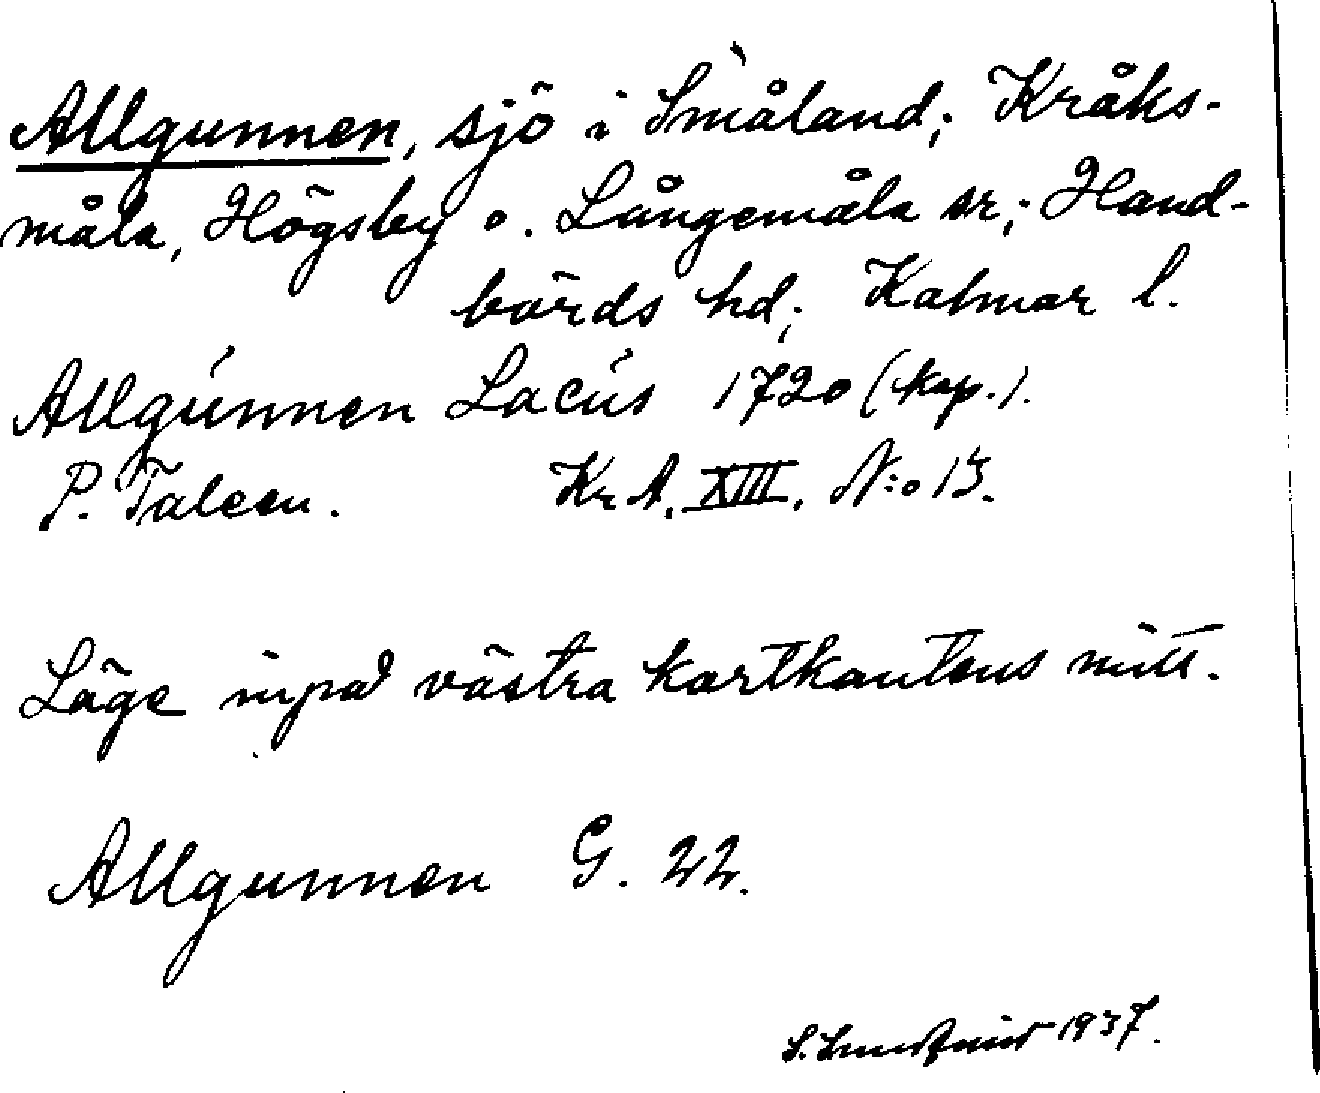 Allgunnen, sjö i Småland; Kråks-
måla, Högsby o. Långemåla sr; Hand-
börds hd; Kalmar l.
Allgúnnen Lacús 1720 (kop.).
P. Taleen. Kr A. XIII, N:o 13.
Läge invid västra kartkantens mitt.
Allgunnen G. 22.
S. 1937.